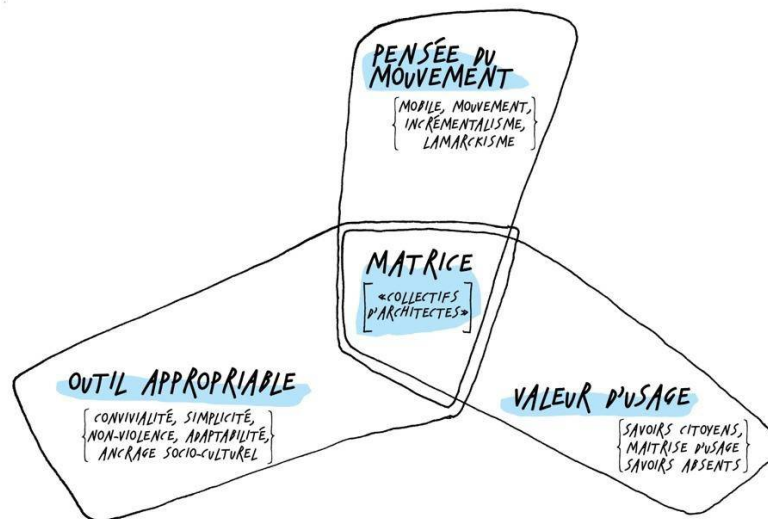 PENSÉE DU
MOUVEMENT
{MOBILE, MOUVEMENT,
INCRÉMENTALISME,
LAMARCKISME}
MATRICE
[«COLLECTIFS
D'ARCHITECTES»]
OUTIL APPROPRIABLE
{CONVIVIALITÉ, SIMPLICITÉ,
NON-VIOLENCE, ADAPTABILITÉ,
ANCRAGE SOCIO-CULTUREL}
VALEUR D'USAGE
{SAVOIRS CITOYENS,
MAITRISE D'USAGE
SAVOIRS ABSENTS}